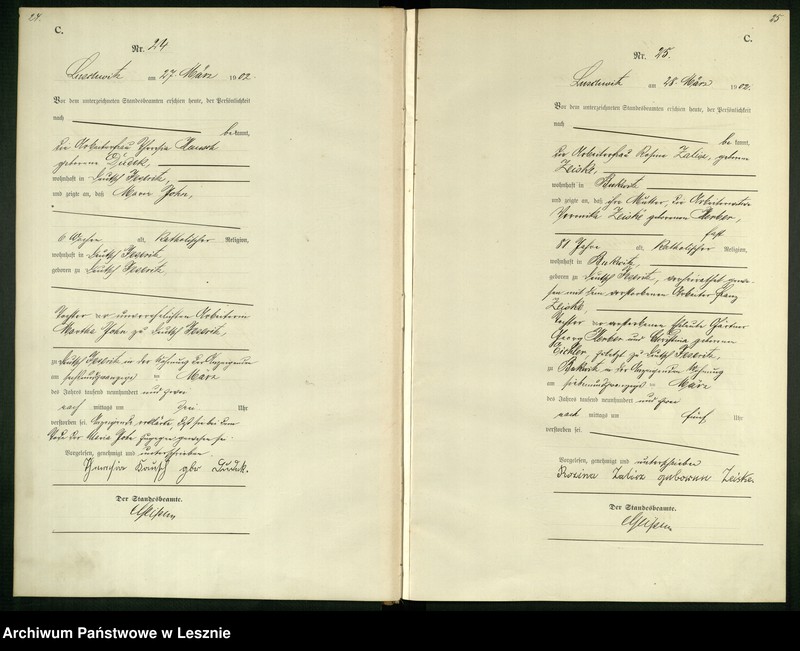 24.
C.
Nr. 24
Luschwitz am 27. März 1902.
Vor dem unterzeichneten Standesbeamten erschien heute, der Persönlichkeit
nach
bekannt,
die Arbeiterfrau
geborene
wohnhaft in Deutsch Jeseritz,
und zeigte an, daß Marie John,
6 Wochen alt, katholischer Religion,
wohnhaft in Deutsch Jeseritz,
geboren zu Deutsch Jeseritz
Tochter der unverehelichten Arbeiterin
Martha John zu Deutsch Jeseritz,
zu Deutsch Jeseritz in der Wohnung der Anzeigenden
am siebenundzwanzigsten März
des Jahres tausend neunhundert und zwei
nach mittags um drei Uhr
verstorben sei. Anzeigende erklärte, daß sie bei dem
Tode der Marie John zugegen gewesen sei.
Vorgelesen, genehmigt und unterschrieben
gbr
Der Standesbeamte.
25
C.
Nr. 25.
Luschwitz am 28. März 1902.
Vor dem unterzeichneten Standesbeamten erschien heute, der Persönlichkeit
nach
be kannt,
die Arbeiterfrau Rosine Zalisz, geborene
Zeiske,
wohnhaft in
und zeigte an, daß ihre Mutter, die Arbeiterwitwe
Zeiske geborenen
fast
81 Jahre alt, katholischer Religion,
wohnhaft in
geboren zu Deutsch Jeseritz, verheirathet gewe-
sen mit dem verstorbenen Arbeiter Franz
Zeiske,
Tochter der verstorbenen Eheleute Gärtner
Georg und Christina geborenen
zuletzt zu Deutsch Jeseritz,
zu in der Anzeigenden Wohnung
am siebenundzwanzigsten März
des Jahres tausend neunhundert und zwei
nach mittags um fünf Uhr
verstorben sei.
Vorgelesen, genehmigt und unterschrieben
Rozina Zalisz geborenne Zeiske
Der Standesbeamte.
Archiwum Państwowe w Lesznie